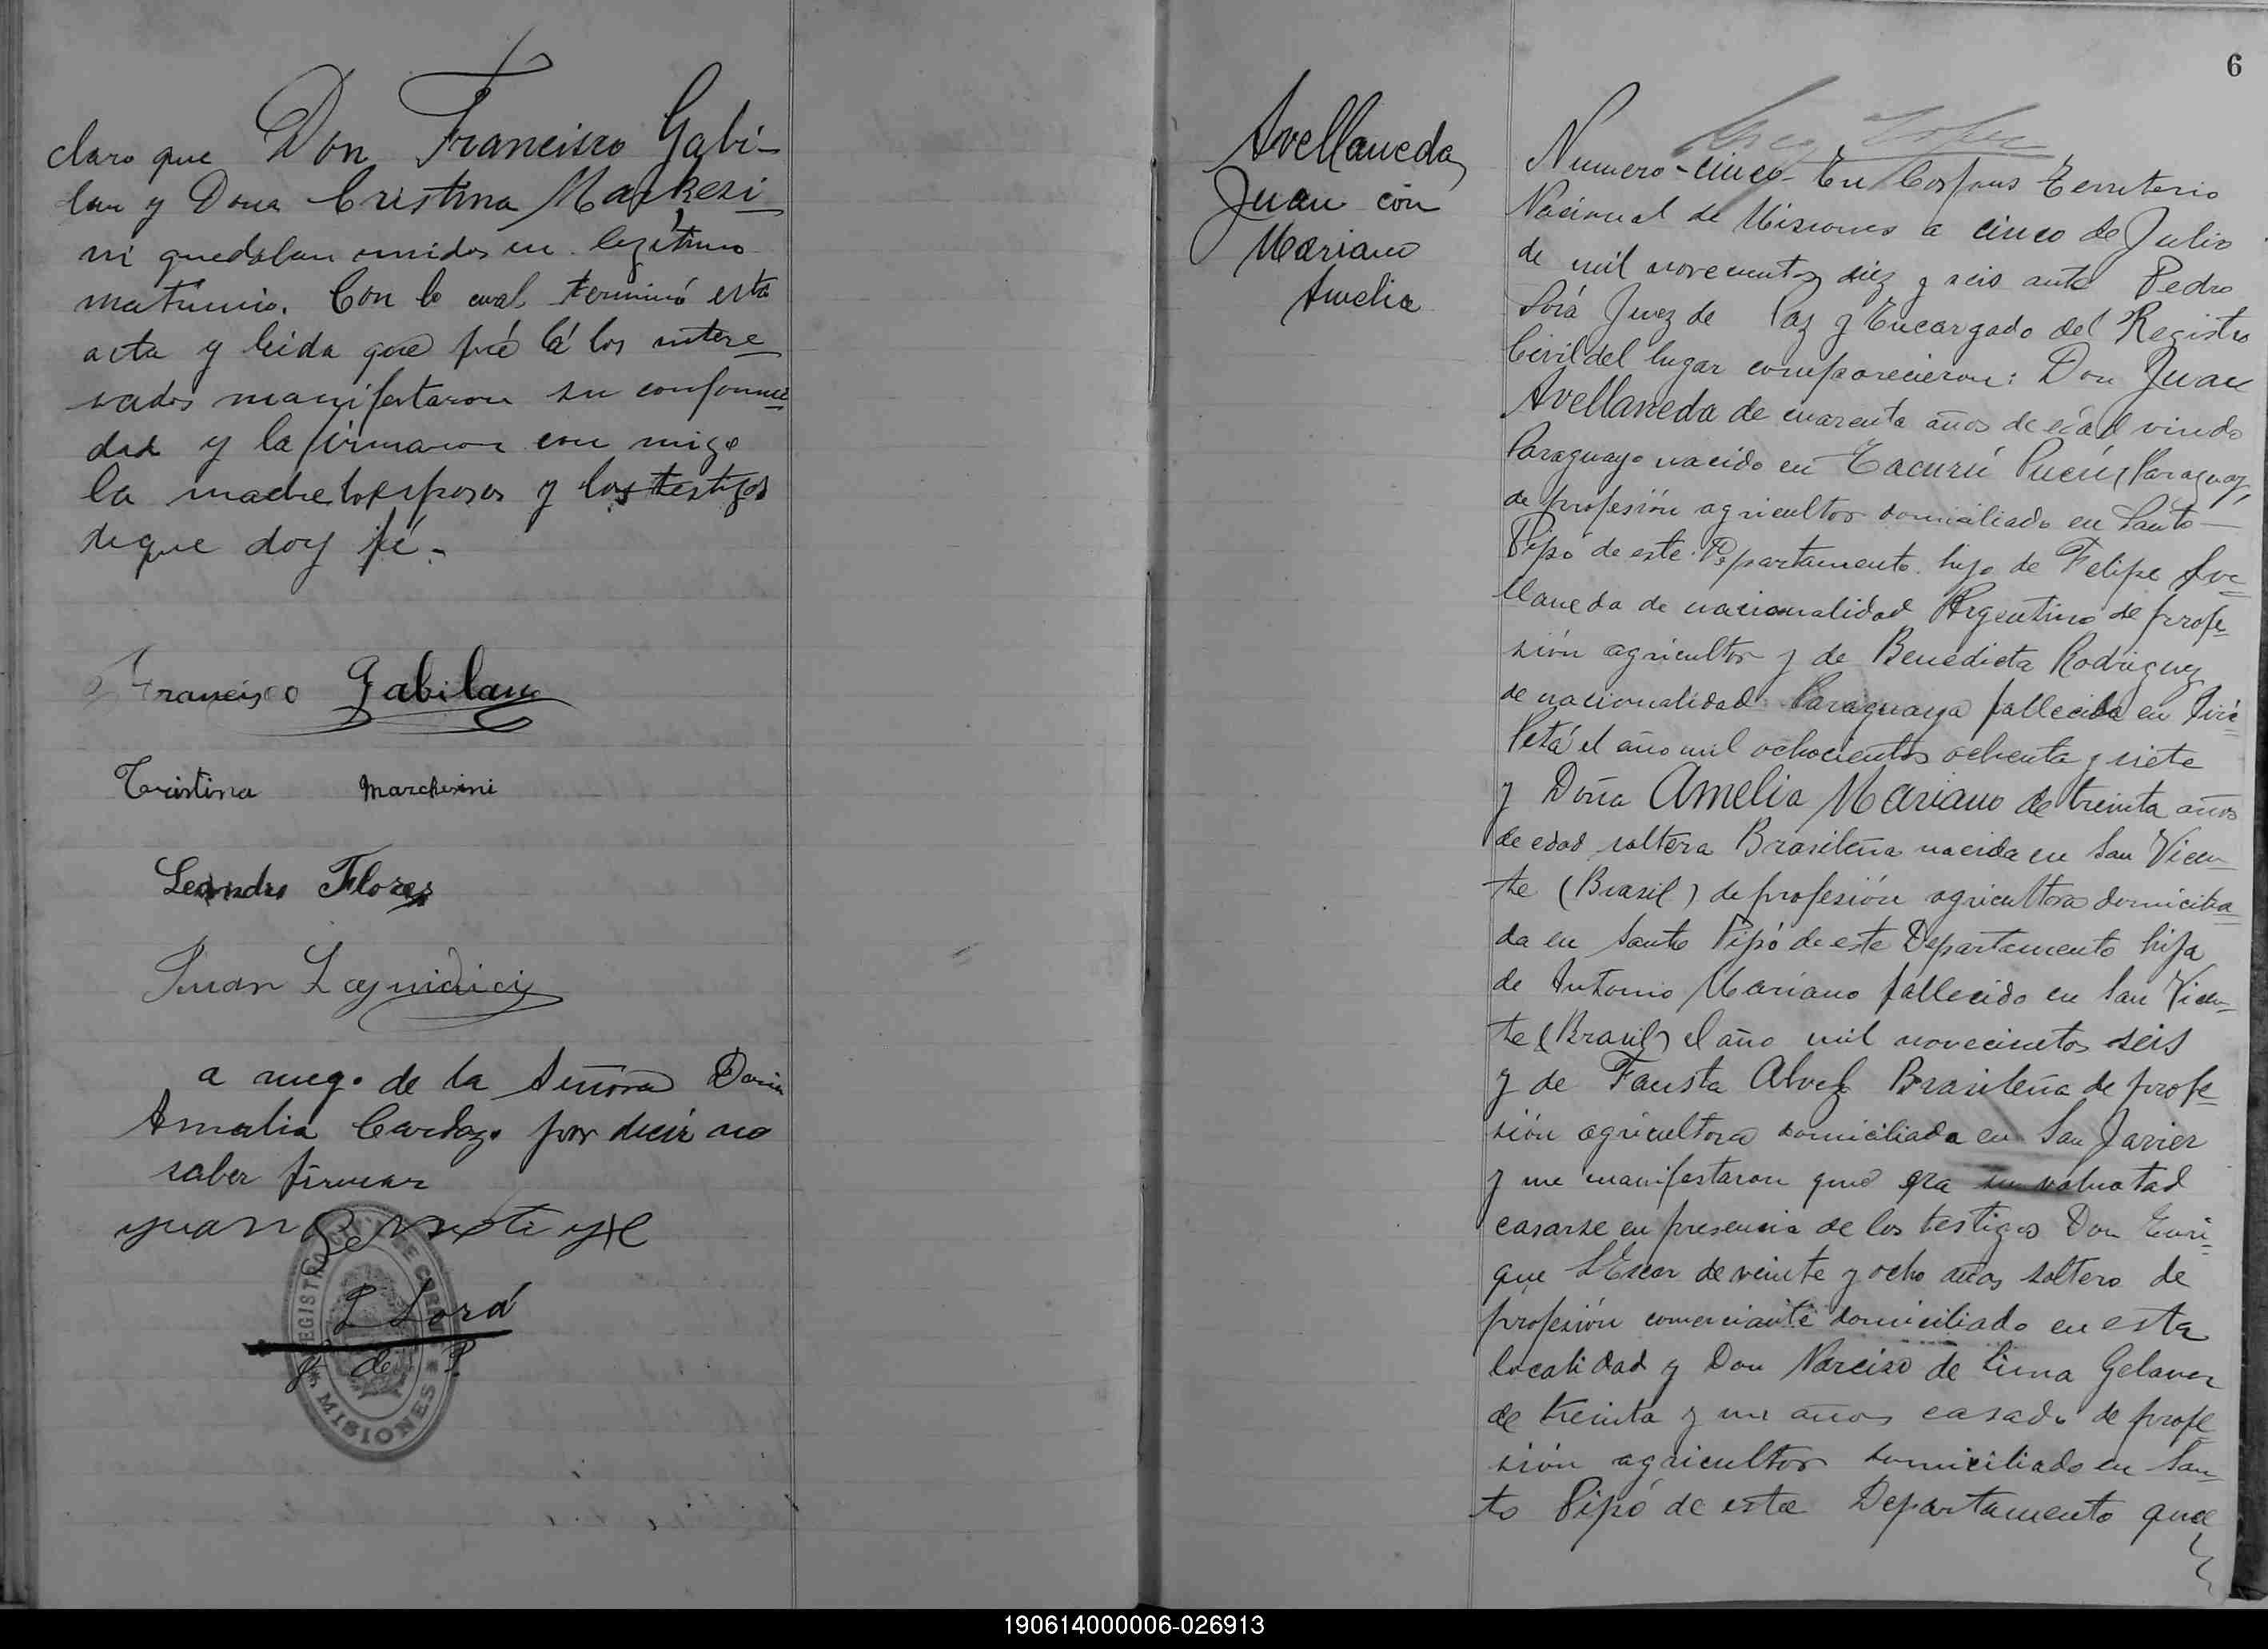 claro que Don Francisco Gabi-
lan y Dona Cristina Markesi
ni quedaban unidos en legítimo
matrimio. Con lo cual terminó esta
acta y leida que fué á los intere
sados manifestaron su conformi
dad y la firmaron con migo
la madre los esposos y los testigos
de que doy fé.-
Francisco Gabilan
Cristina Marchesini
Leandro Flores
Juan
a ruego de la Señora Dona
Amalia Cardozo por decir no
saber firmar
Juan
P Lorá
J de P.
REGISTRO CIVIL
MISIONES
6
Avellaneda
Juan con
Mariano
Amelia
Numero-cinco- En Corpus Territorio
Nacional de Misiones a cinco de Julio
de mil novecientos diez y seis ante Pedro
Lorá Juez de Paz y Encargado del Registro
Civil del lugar comparecieron: Don Juan
Avellaneda de cuarenta años de edad viudo
Paraguayo nacido en Tacurú Pucú (Paraguay)
de profesión agricultor domiciliado en Santo
Pipó de este Departamento hijo de Felipe Ave
llaneda de nacionalidad Argentino de profe
sión agricultor y de Benedicta Rodriguez
de nacionalidad Paraguaya fallecida en
el año mil ochocientos ochenta y siete
y Doña Amelia Mariano de treinta años
de edad soltera Brasileña nacida en San Vicen
te (Brasil) de profesión agricultora domicilia
da en Santo Pipó de este Departamento hija
de Antonio Mariano fallecido en San Vicen
te (Brasil) el año mil novecientos seis
y de Fausta Alvez Brasileña de profe
sión agricultora domiciliada en San Javier
y me manifestaron que era su voluntad
casarse en presencia de los testigos Don Enri
que de veinte y ocho años soltero de
profesión comerciante domiciliado en esta
localidad y Don Narciso de Lima
de treinta y un años casado de profe
sión agricultor domiciliado en San
to Pipó de este Departamento que
190614000006-026913